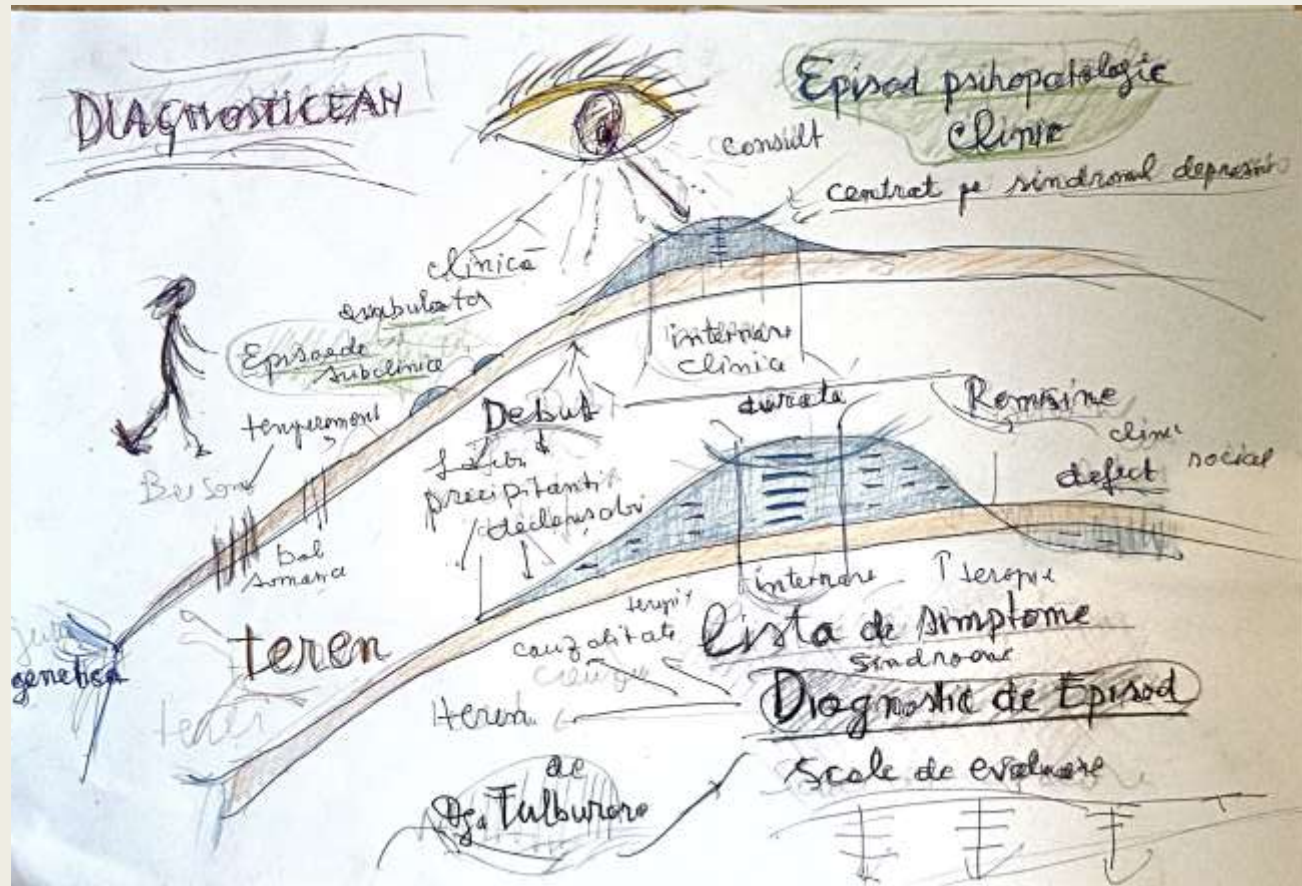 DIAGNOSTICEAN
Episod psihopatologic
clinic
consult
centrat pe sindromul depresiv
clinică
ambulator
Episoade
subclinice
internare
clinica
temperament
Debut
durata
Remisine
clinic
social
defect
precipitanti
declansatori
boal
somatica
teren
genetica
internare
terapie
cauzalitate
lista de simptome
sindroame
Diagnostic de Episod
teren
scale de evaluare
de
Tulburare